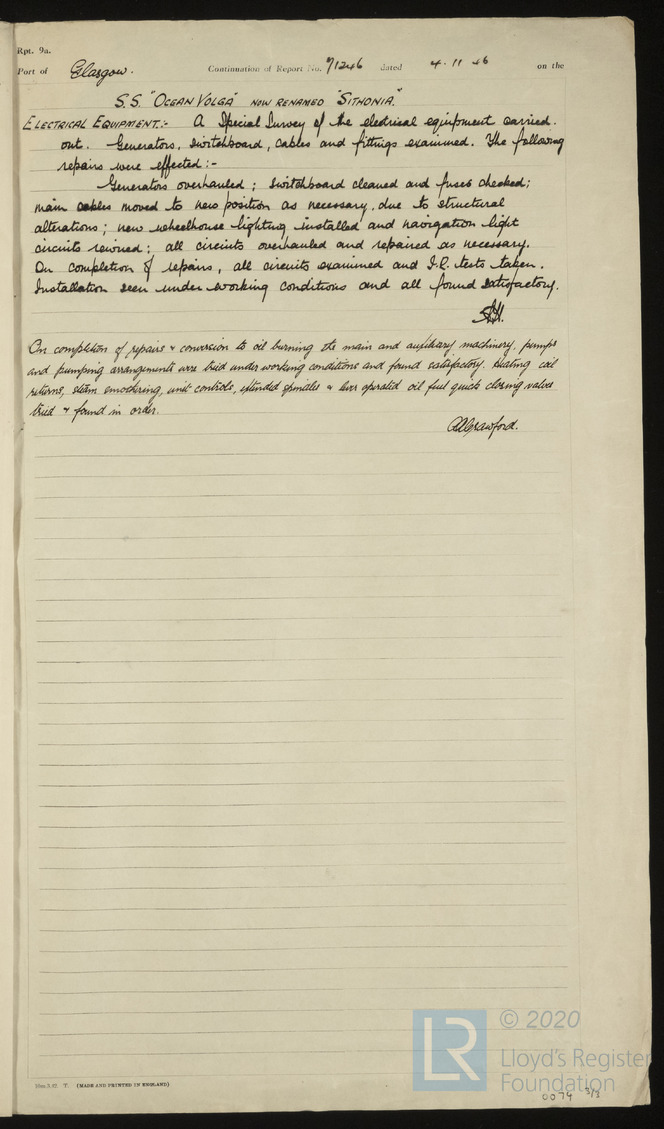 Rpt. 9a.
Port of Glasgow. Continuation of Report No. 71246 dated 4.11.46 on the
S.S. "OCEAN VOLGA" NOW RENAMED "SITHONIA."
ELECTRICAL EQUIPMENT:- A Special Survey of the electrical equipment carried.
out. Generators, switchboard, cables and fittings examined. The following
repairs were effected:-
Generators overhauled; switchboard cleaned and fuses checked;
main cables moved to new position as necessary, due to structural
alterations; new wheelhouse lighting installed and navigation light
circuits rewired; all circuits overhauled and repaired as necessary.
On completion of repairs, all circuits examined and I.R. tests taken.
Installation seen under working conditions and all found satisfactory.
On completion of repairs & conversion to oil burning the main and auxiliary machinery, pumps
and pumping arrangements were tried under working conditions and found satisfactory. Heating coil
returns, steam smothering, unit controls, extended spindles & lever operated oil fuel quick closing valves
tried & found in order.
AACrawford.
T. (MADE AND PRINTED IN ENGLAND)
LR © 2020
Lloyd's Register
Foundation
0074 3/3